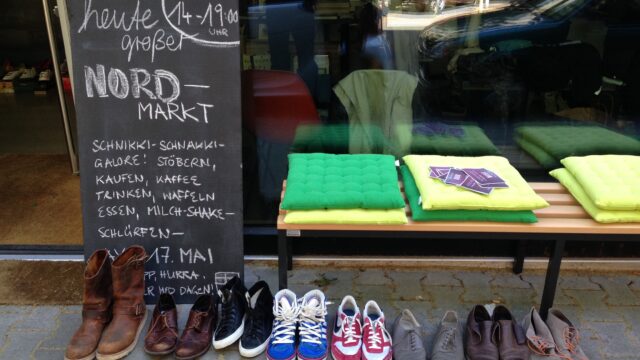 heute 14-19:00
großer UHR
NORD-
MARKT
SCHNIKKI-SCHNAKKI-
GALORE! STÖBERN,
KAUFEN, KAFFEE
TRINKEN, WAFFELN
ESSEN, MILCH-SHAKE-
SCHLÜRFEN-
17. MAI
HURRA.